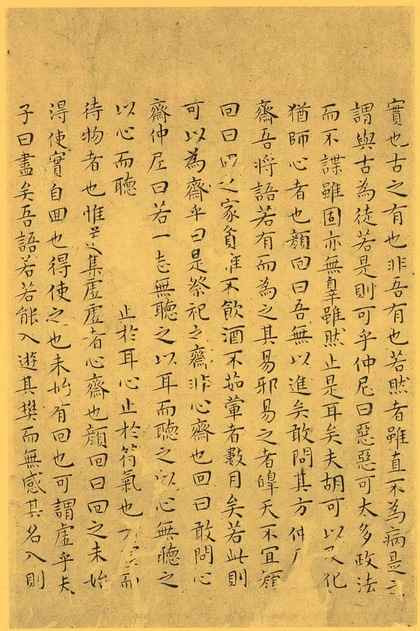 實也古之有也非吾有也若然者雖直不為病是之
謂與古為徒若是則可乎仲尼曰惡惡可大多政法
而不諜雖固亦無辠雖然止是耳矣夫胡可以及化
猶師心者也顏回曰吾無以進矣敢問其方仲
齋吾將語若有而為之其易邪易之者皞天不宜顏
回曰回之家貧唯不飲酒不茹葷者數月矣若此則
可以為齋乎曰是祭祀之齋非心齋也回曰敢問心
齋仲尼曰若一志無聽之以耳而聽之以心無聽之
以心而聽 止於耳心止於符氣也虛而
待物者也惟集虛虛者心齋也顏回曰回之未始
得使實自回也得使之也未始有回也可謂虛乎夫
子曰盡矣吾語若若能入遊其樊而無感其名入則